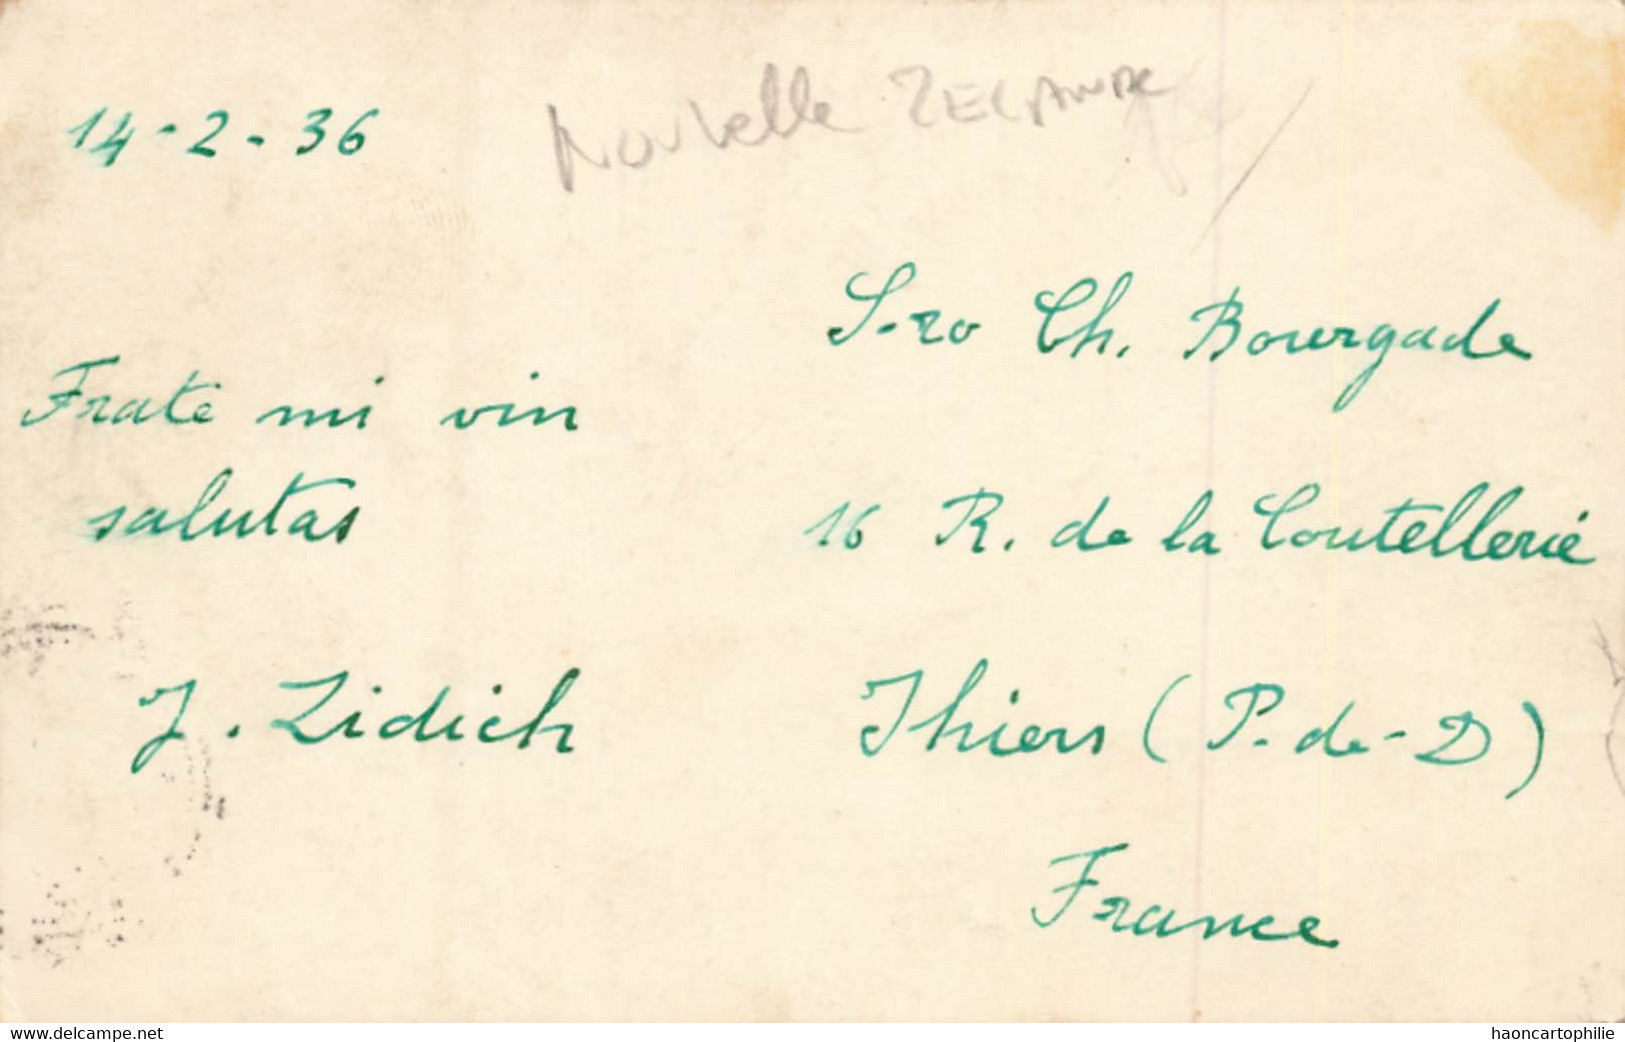 14-2-36
Nouvelle ZELANDE
S-ro Ch. Bourgade
Frate mi vin
salutas
16 R. de la Coutellerie
J. Zidich
Thiers (P.-de-D)
France
www.delcampe.net
haoncartophilie